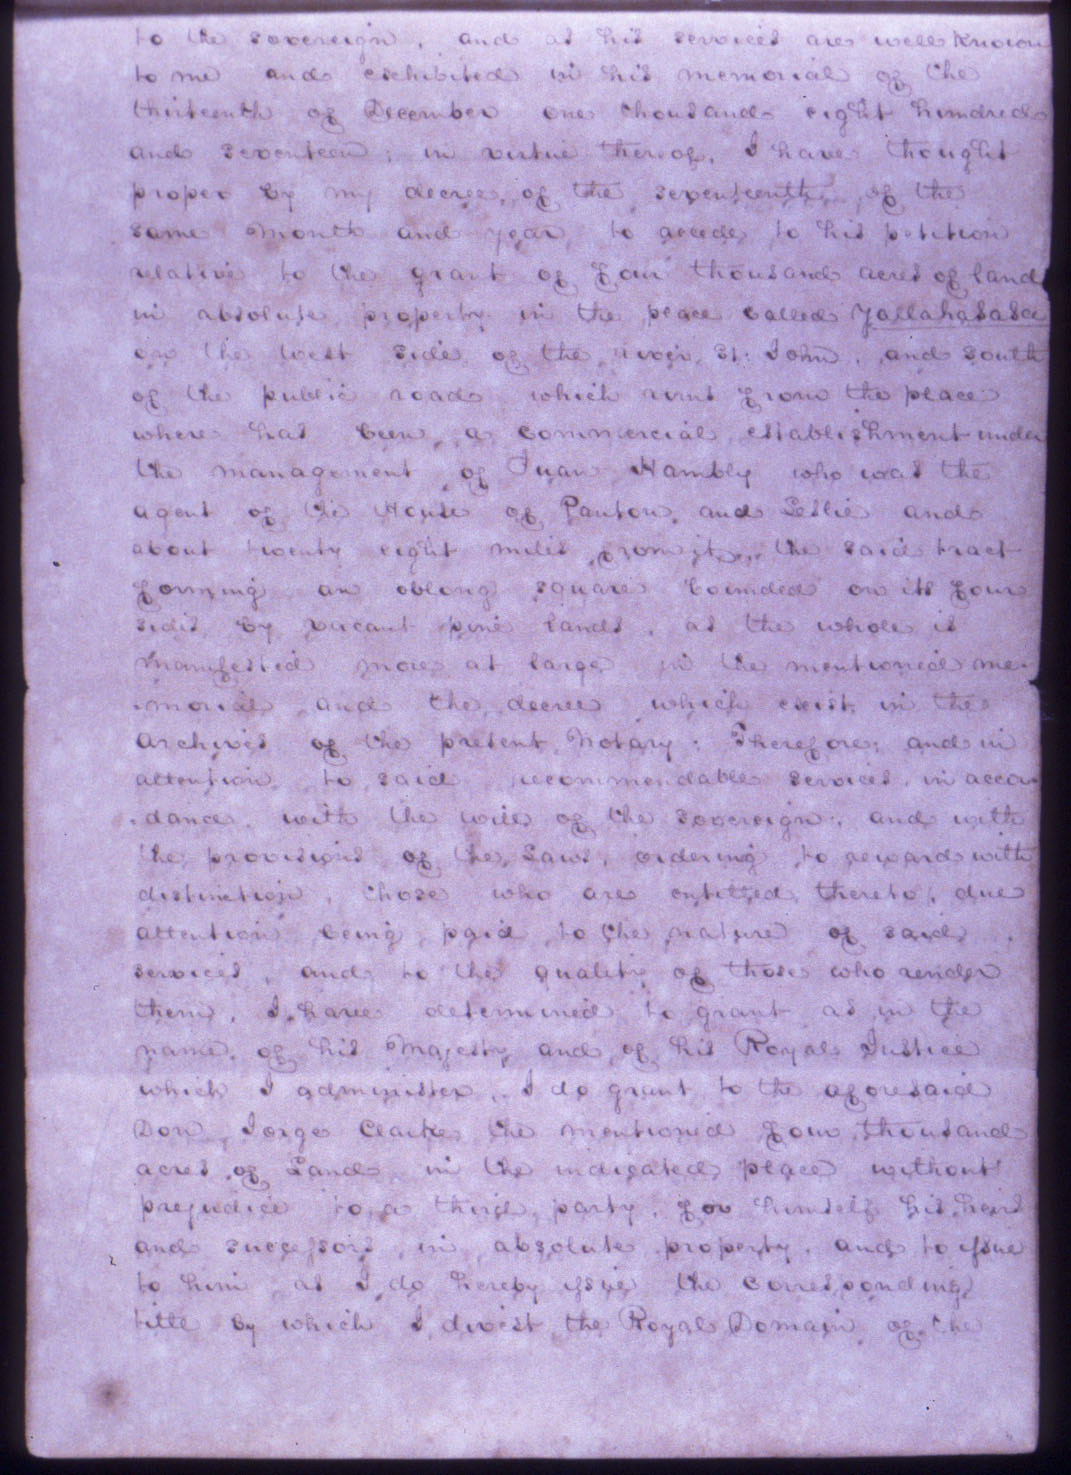 to the sovereign, and as his services are well known
to me and exhibited in his memorial of the
thirteenth of December one thousand eight hundred
and seventeen; in virtue thereof, I have thought
proper by my decree of the seventeenth of the
same month and year to accede to his petition
relative to the grant of four thousand acres of land
in absolute property in the place called Yallahasasa
on the west side of the river St. John, and south
of the public road which runs from the place
where has been a commercial establishment under
the management of Juan Hambly who was the
agent of the House of Panton and Leslie and
about twenty eight miles from it, the said tract
forming an oblong square bounded on its four
sides by vacant pine lands, as the whole is
manifested more at large in the mentioned me-
-morial and the decree which exist in the
Archives of the present Notary; Therefore, and in
attention to said recommendable services, in accor-
-dance with the will of the sovereign, and with
the provisions of the Laws, ordering to reward with
distinction, those who are entitled thereto, due
attention being paid to the nature of said
services, and to the quality of those who render
them, I have determined to grant as in the
name of his Majesty and of his Royal Justice
which I administer, I do grant to the aforesaid
Don Jorge Clarke the mentioned four thousand
acres of Land in the indicated place without
prejudice to a third party, for himself his heirs
and successors in absolute property, and to issue
to him as I do hereby issue the corresponding
title by which I divest the Royal Domain of the